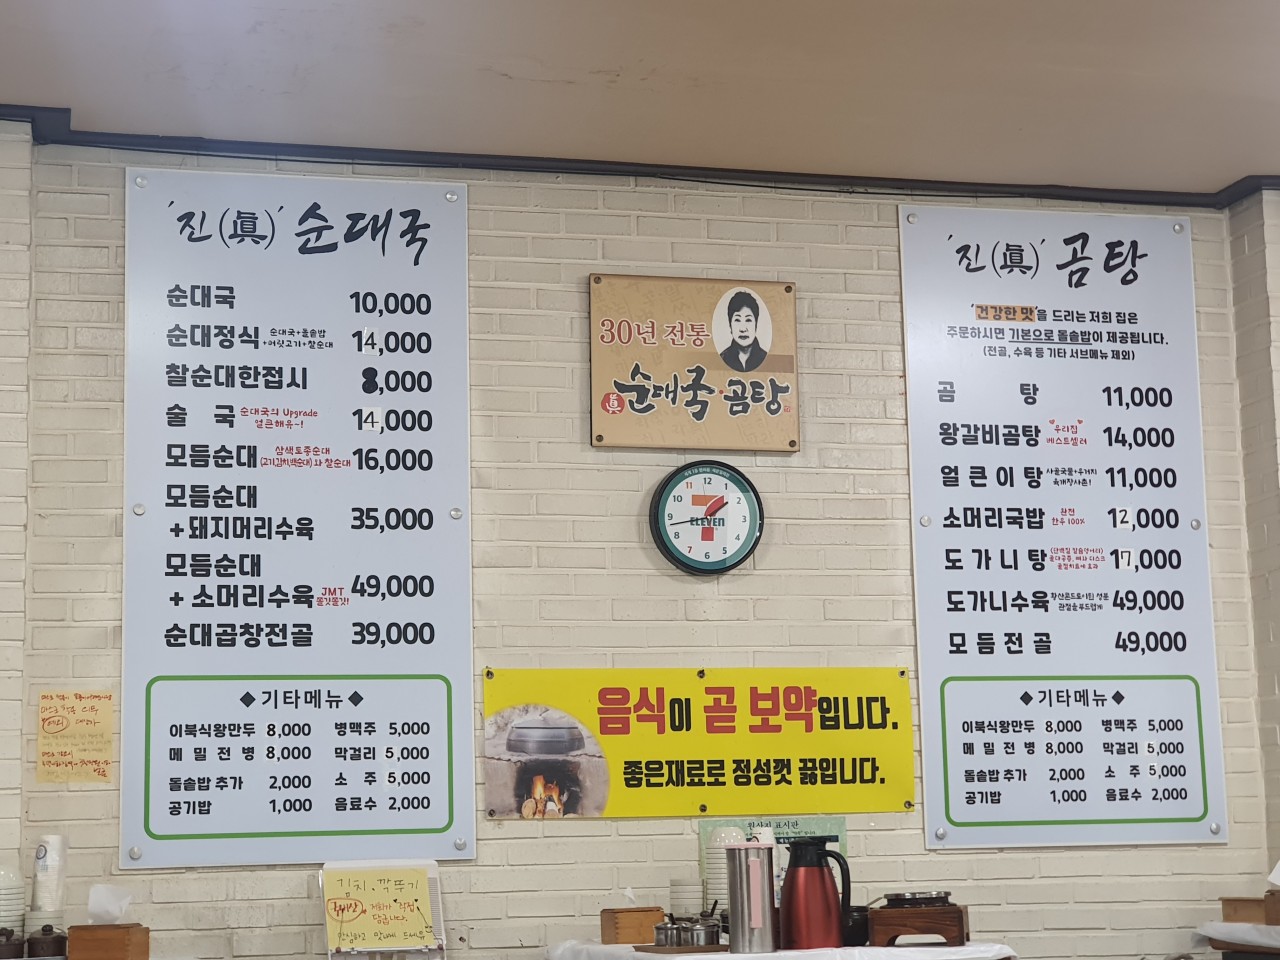 '진(眞)' 순대국
순대국 10,000
순대정식 순대국+돌솥밥 +머릿고기+찰순대 14,000
찰순대한접시 8,000
술 국 순대국의 Upgrade 얼큰해유~! 14,000
모듬순대 삼색토종순대 (고기,김치,백순대)와 찰순대 16,000
모듬순대
+돼지머리수육 35,000
모듬순대
+소머리수육 JMT 쫄깃쫄깃! 49,000
순대곱창전골 39,000
◆기타메뉴◆
이북식왕만두 8,000 병맥주 5,000
메밀전병 8,000 막걸리 5,000
돌솥밥 추가 2,000 소 주 5,000
공기밥 1,000 음료수 2,000
30년 전통
眞 순대국·곰탕
12
1
2
3
4
5
6
7
8
9
10
11
7
ELEVEN
음식이 곧 보약입니다.
좋은재료로 정성껏 끓입니다.
'진(眞)' 곰탕
'건강한 맛'을 드리는 저희 집은
주문하시면 기본으로 돌솥밥이 제공됩니다.
(전골, 수육 등 기타 서브메뉴 제외)
곰 탕 11,000
왕갈비곰탕 우리집 베스트셀러 14,000
얼큰이탕 사골국물+우거지 육개장사촌! 11,000
소머리국밥 완전 한우 100% 12,000
도가니탕 17,000
도가니수육 관절을 부드럽게 49,000
모듬전골 49,000
◆기타메뉴◆
이북식왕만두 8,000 병맥주 5,000
메밀전병 8,000 막걸리 5,000
돌솥밥 추가 2,000 소 주 5,000
공기밥 1,000 음료수 2,000
원산지 표시판
김치.깍두기
국내산 저희가 직접
담급니다.
안심하고 맛나게 드세유